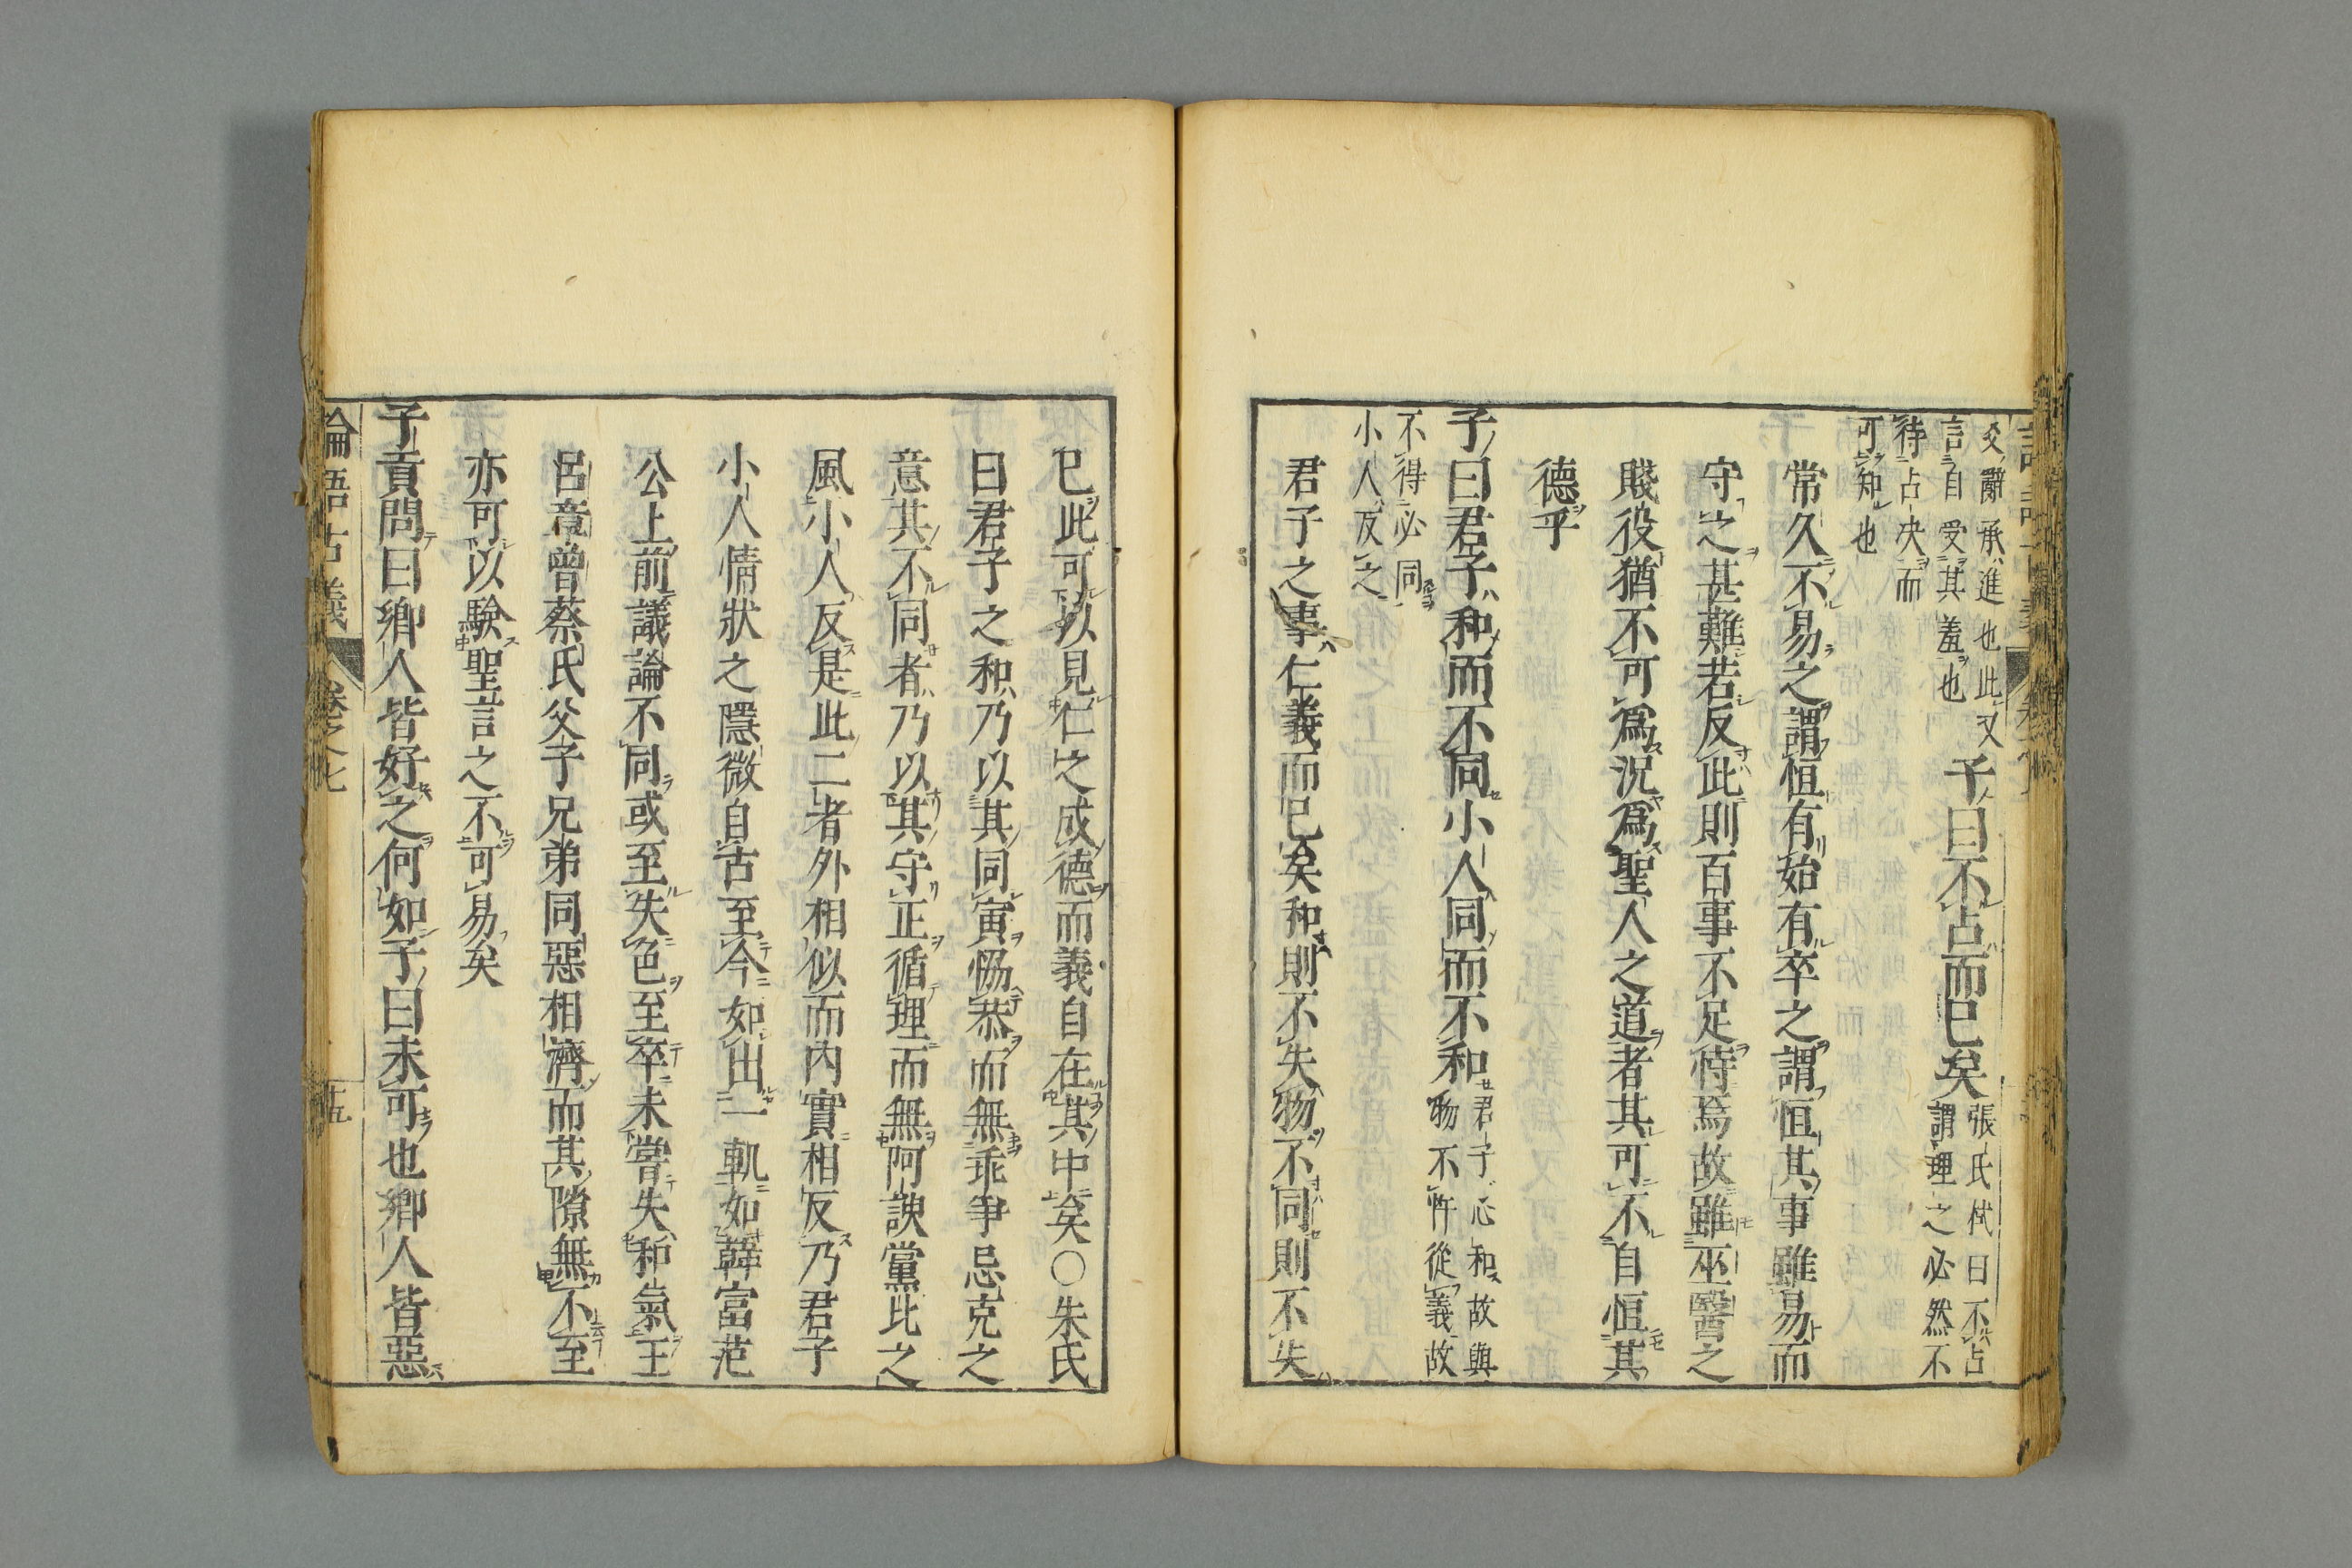 爻辭承進也此又
言自受其羞也
子曰不占而已矣
張氏栻曰不占
謂理之必然不
待占决而
可知也
常久不易之謂恒有始有卒之謂恒其事雖易而
守之甚難若反此則百事不足恃焉故雖巫醫之
賤役猶不可爲況爲聖人之道者其可不自恒其
德乎
子曰君子和而不同小人同而不和
君子心和故與
物不忤從義故
不得必同
小人反之
君子之事仁義而已矣和則不失物不同則不失
已此可以見仁之成德而義自在其中矣○朱氏
曰君子之和乃以其同寅恊恭而無乖爭忌克之
意其不同者乃以其守正循理而無阿諛黨比之
風小人反是此二者外相似而内實相反乃君子
小人情狀之隱微自古至今如出一軌如韓富范
公上前議論不同或至失色至卒未嘗失和氣王
呂章曾蔡氏父子兄弟同惡相濟而其隙無不至
亦可以驗聖言之不可易矣
子貢問曰鄉人皆好之何如子曰未可也鄉人皆惡
論語古義 卷之七 十五